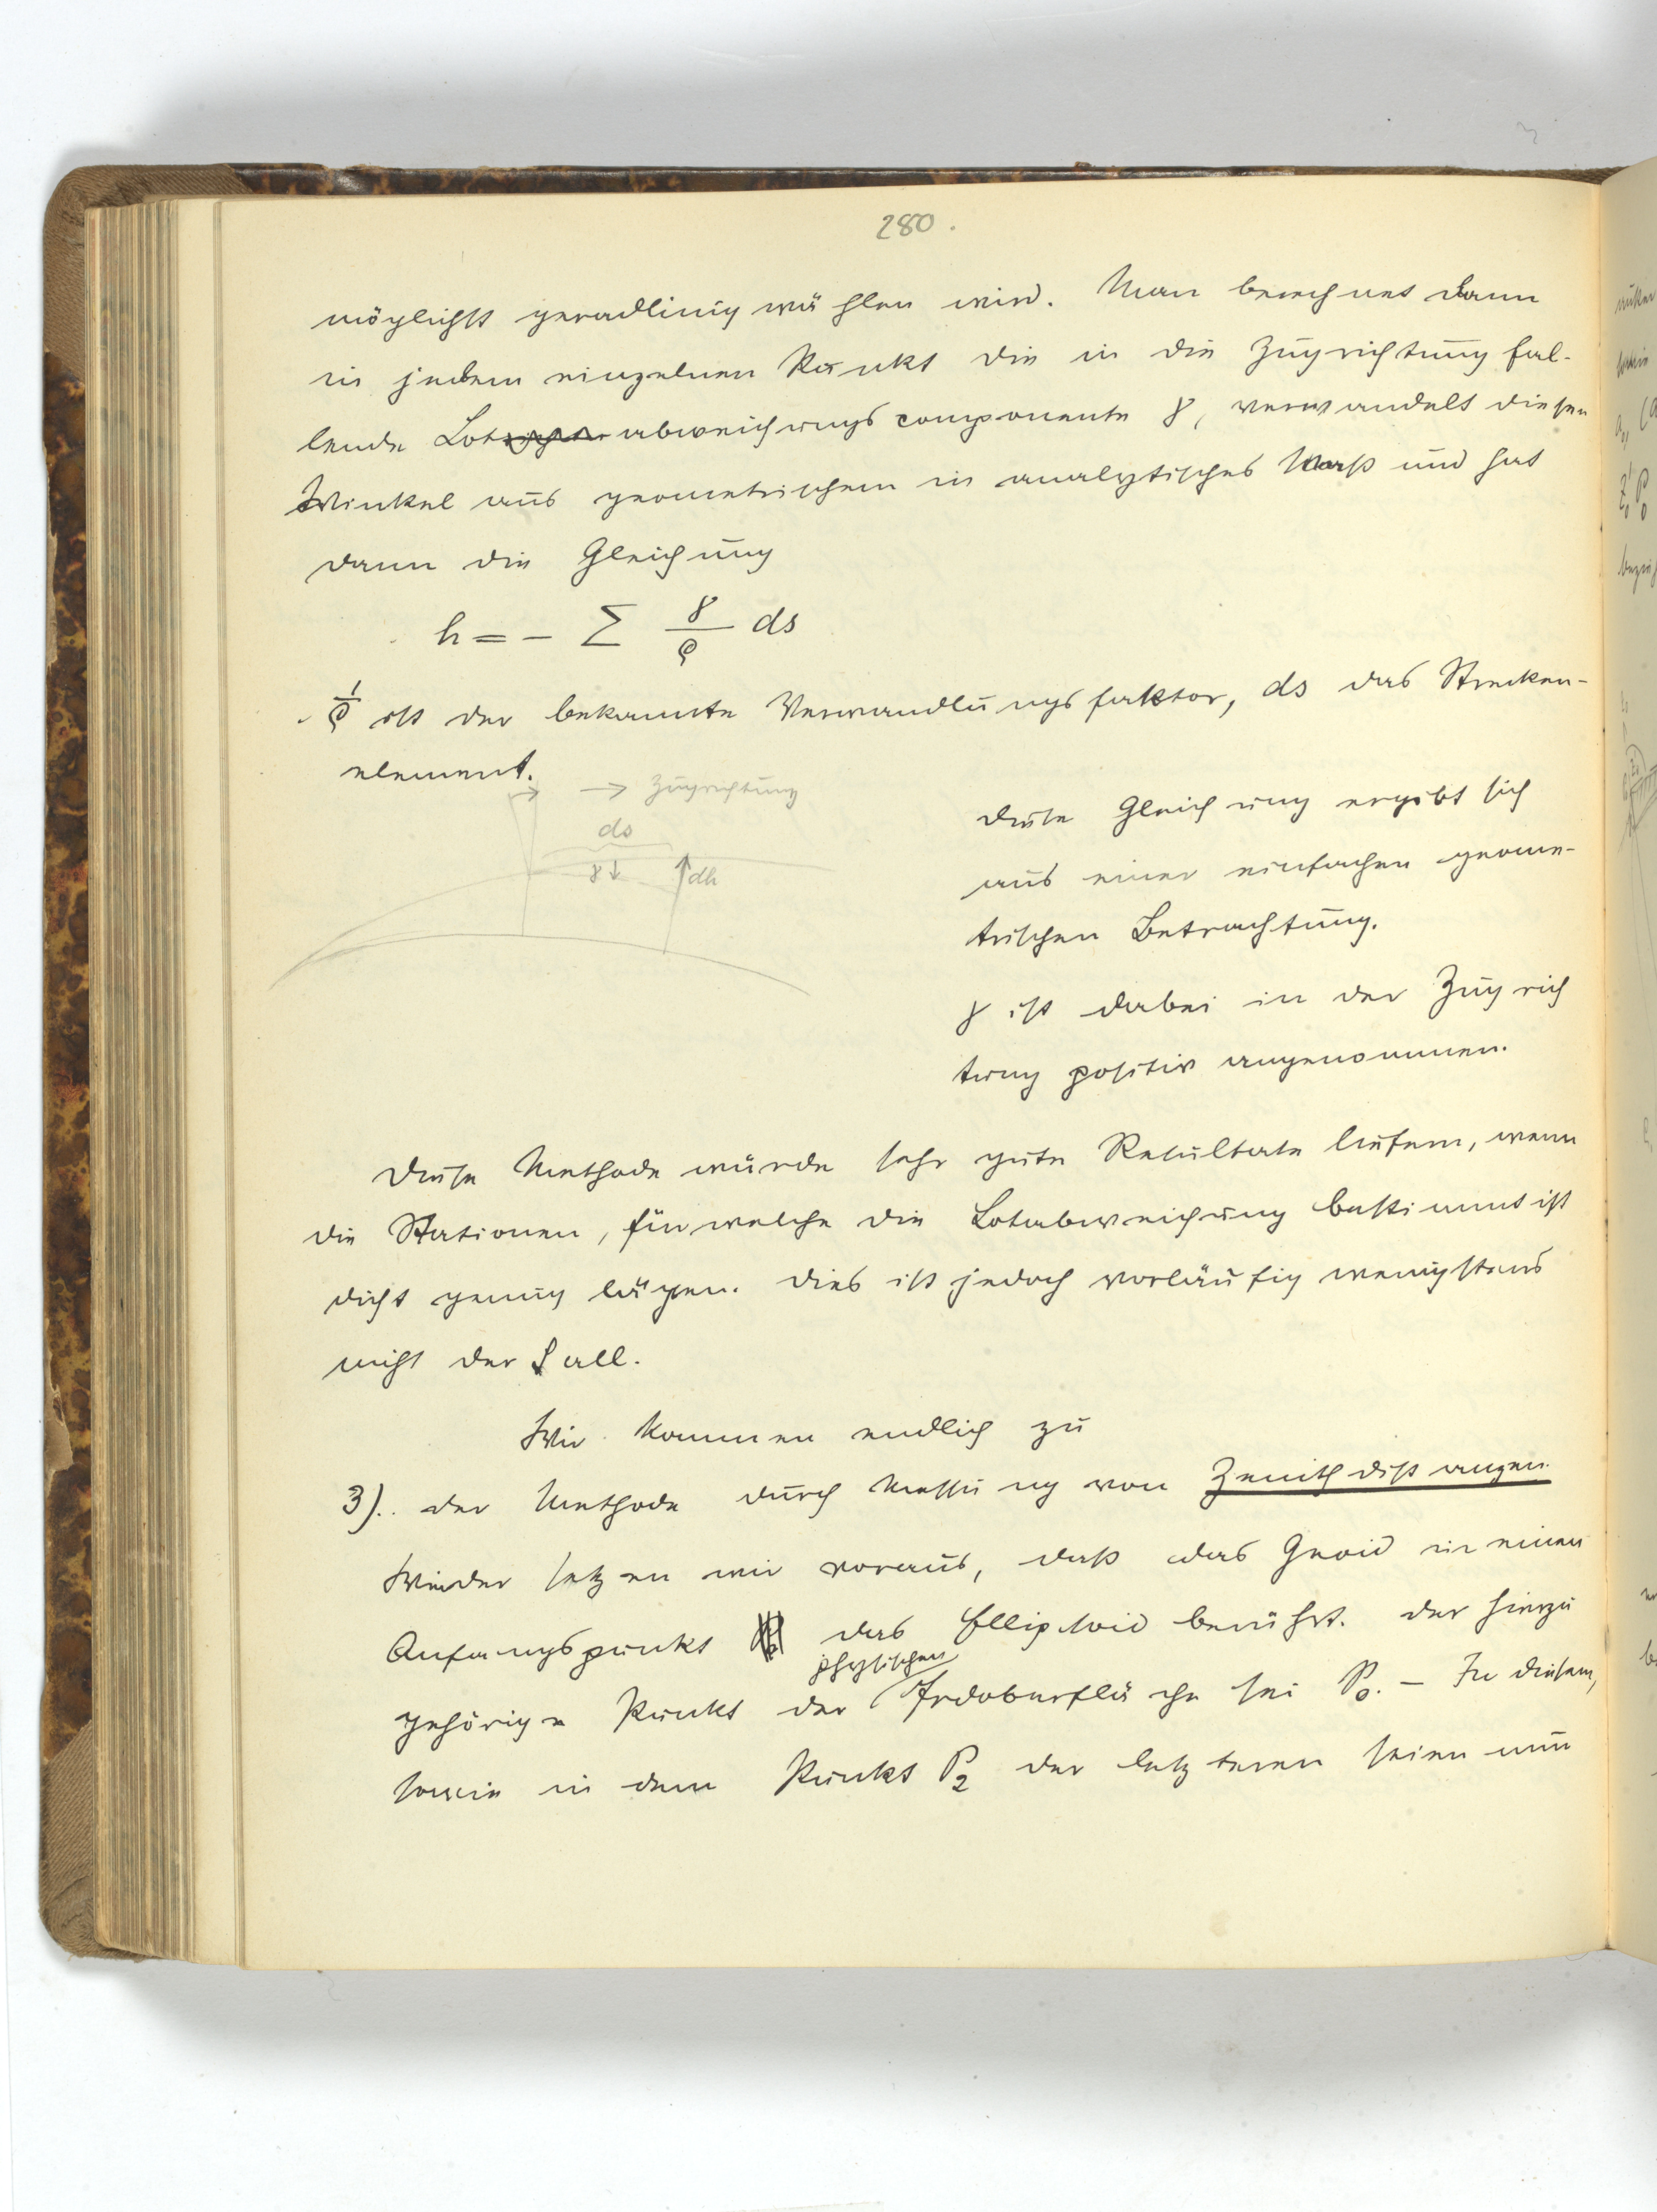 280.
möglichst geradlinig wählen wird. Man berechnet dann
in jedem einzelnen Punkt die in die Zugrichtung fal-
lende Lotabweichungscomponente γ, verwandelt diesen
Winkel aus geometrischem in analytisches Maß und hat
dann die Gleichung
h = - Σ γ/ρ ds
1/ρ ist der bekannte Verwandlungsfaktor, ds das Strecken-
element.
→ Zugrichtung
ds
γ↓ ↑dh
Diese Gleichung ergibt sich
aus einer einfachen geome-
trischen Betrachtung.
γ ist dabei in der Zugrich
tung positiv angenommen.
Diese Methode würde sehr gute Resultate liefern, wenn
die Stationen, für welche die Lotabweichung bestimmt ist
dicht genug lägen. Dies ist jedoch vorläufig wenigstens
nicht der Fall.
Wir kommen endlich zu
3). der Methode durch Messung von Zenithdistanzen.
Wieder setzen wir voraus, daß das Geoid in einem
Anfangspunkt das Ellipsoid berührt. Der hierzu
physischen
gehörige Punkt der Erdoberfläche sei P₀. - In diesem,
sowie in dem Punkt P₂ der letzteren seien nun